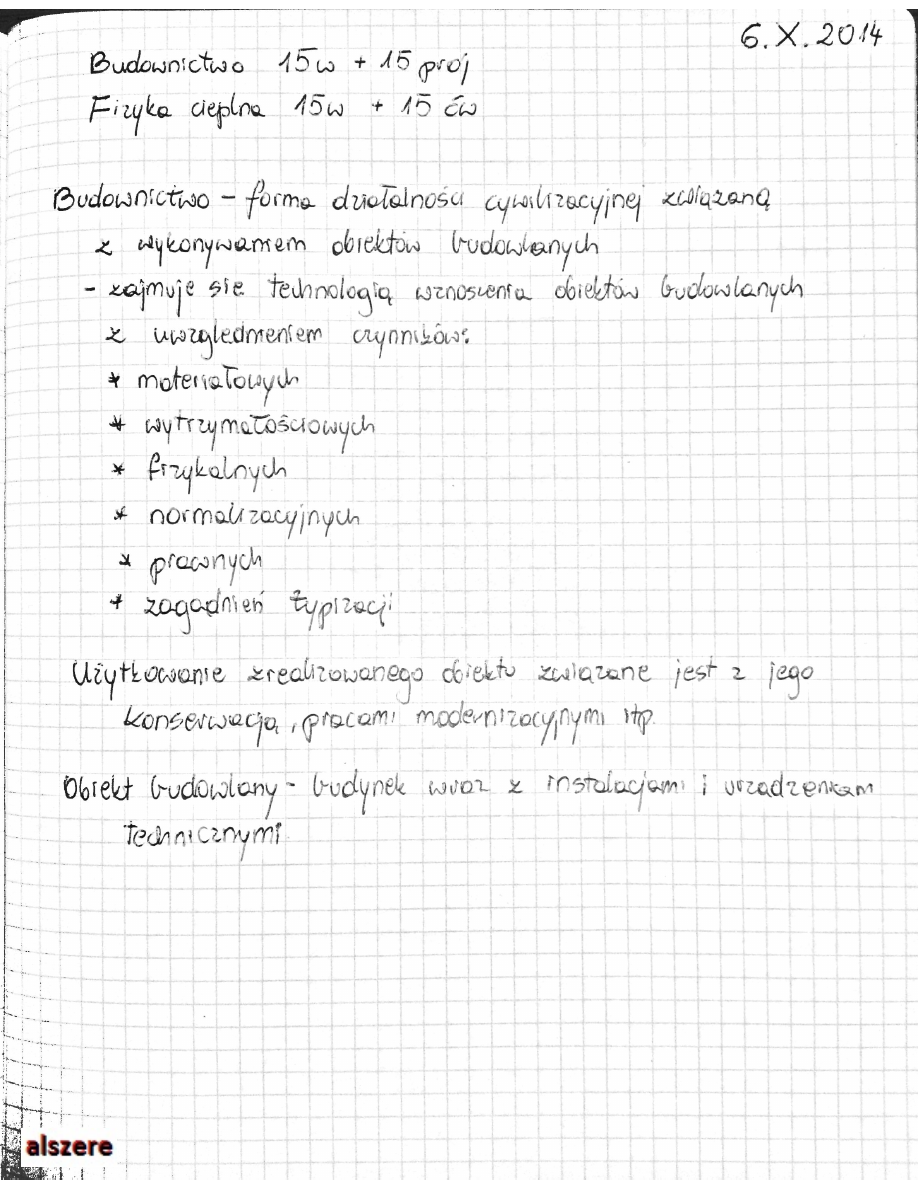 6.X.2014
Budownictwo 15w + 15 proj
Fizyka cieplna 15w + 15 ćw
Budownictwo – forma działalności cywilizacyjnej związaną
z wykonywaniem obiektów budowlanych
- zajmuje sie technologią wznoszenia obiektów budowlanych
z uwzglednieniem czynników:
* materiałowych
* wytrzymałościowych
* fizykalnych
* normalizacyjnych
* prawnych
* zagadnień typizacji
Użytkowanie zrealizowanego obiektu związane jest z jego
konserwacją, pracami modernizacyjnymi itp.
Obiekt budowlany - budynek wraz z instalacjami i urządzeniam
technicznymi
alszere